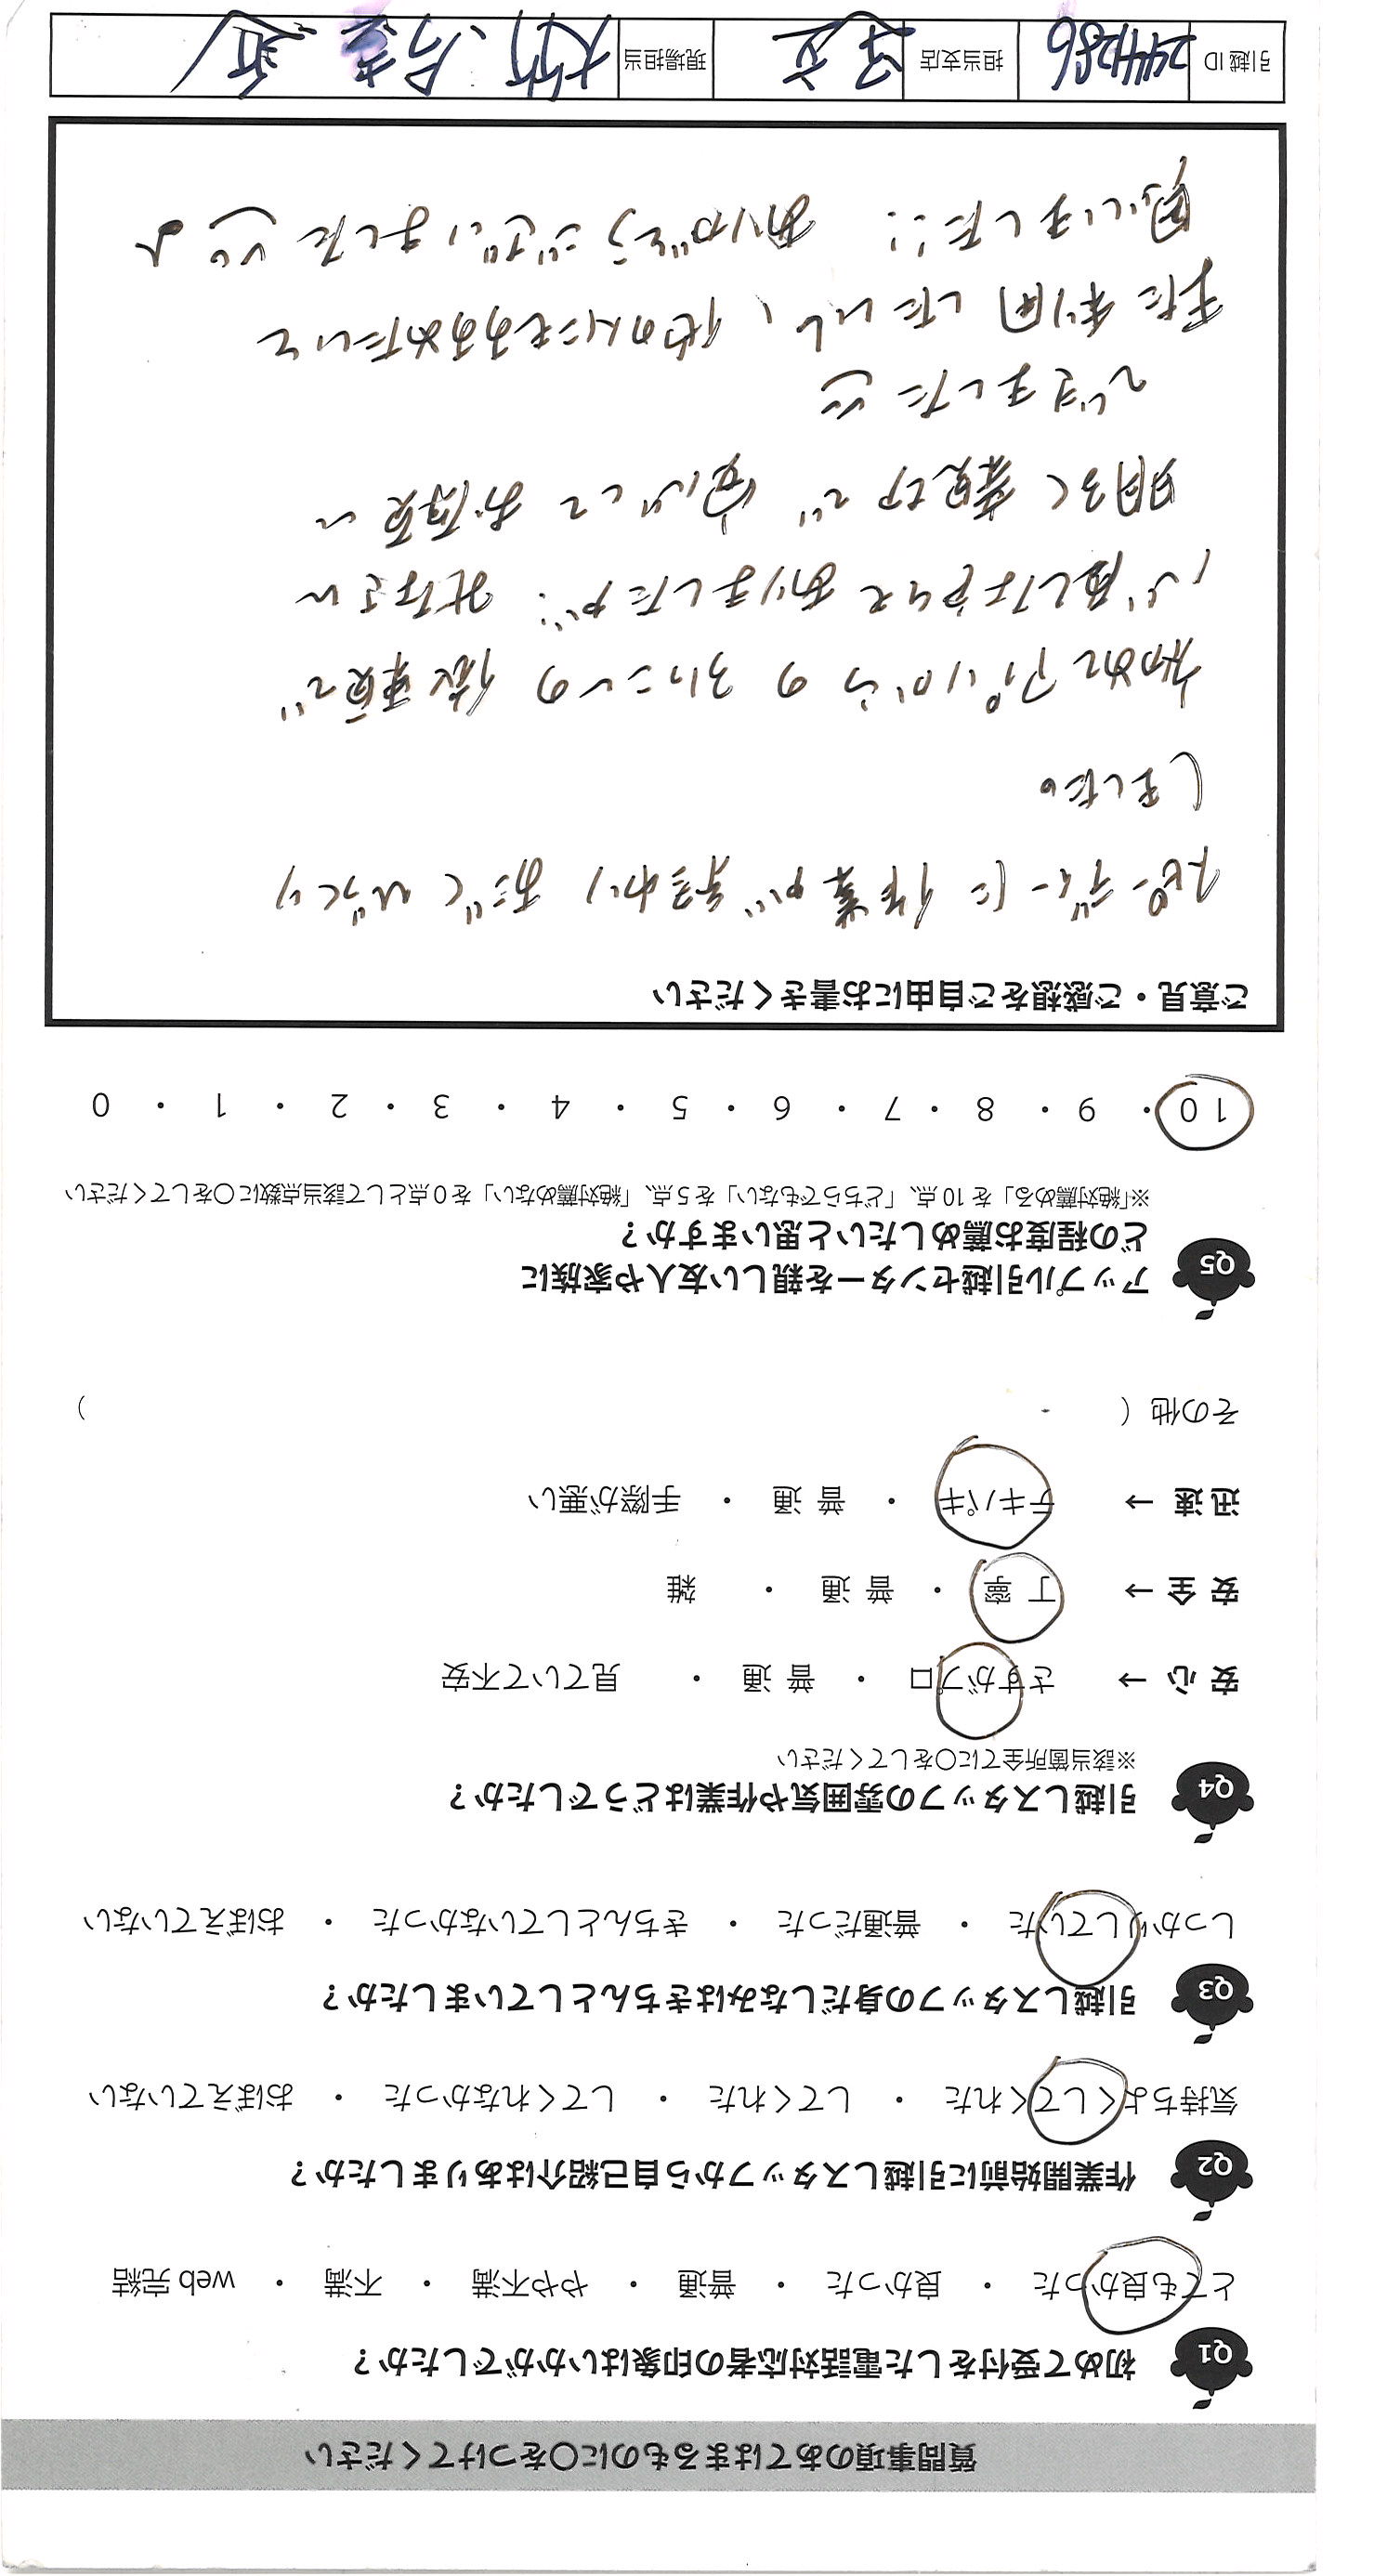 質問事項のあてはまるものに〇をつけてください
Q1 初めて受付をした電話対応者の印象はいかがでしたか？
とても良かった ・ 良かった ・ 普通 ・ やや不満 ・ 不満 ・ web 完結
Q2 作業開始前に引越しスタッフから自己紹介はありましたか？
気持ちよくしてくれた ・ してくれた ・ してくれなかった ・ おぼえていない
Q3 引越しスタッフの身だしなみはきちんとしていましたか？
しっかりしていた ・ 普通だった ・ きちんとしていなかった ・ おぼえていない
Q4 引越しスタッフの雰囲気や作業はどうでしたか？
※該当箇所全てに〇をしてください
安心 → さすがプロ ・ 普通 ・ 見ていて不安
安全 → 丁寧 ・ 普通 ・ 雑
迅速 → テキパキ ・ 普通 ・ 手際が悪い
その他（ ）
Q5 アップル引越センターを親しい友人や家族に
どの程度お薦めしたいと思いますか？
※「絶対薦める」を 10 点、「どちらでもない」を 5 点、「絶対薦めない」を 0 点として該当点数に〇をしてください
10 ・ 9 ・ 8 ・ 7 ・ 6 ・ 5 ・ 4 ・ 3 ・ 2 ・ 1 ・ 0
ご意見・ご感想をご自由にお書きください
スピーディーに作業が終わり おどくびっくり
しました。
初めてアプリからの引っこしの依頼で
心配しな とてありましたが、 さん
明るく親切で 安心して お願い
できました
また利用したいし、他の人にもおすすめたいと
思いました!! ありがとうございました♪
引越 ID 2444286 担当支店 足立 現場担当 大竹、